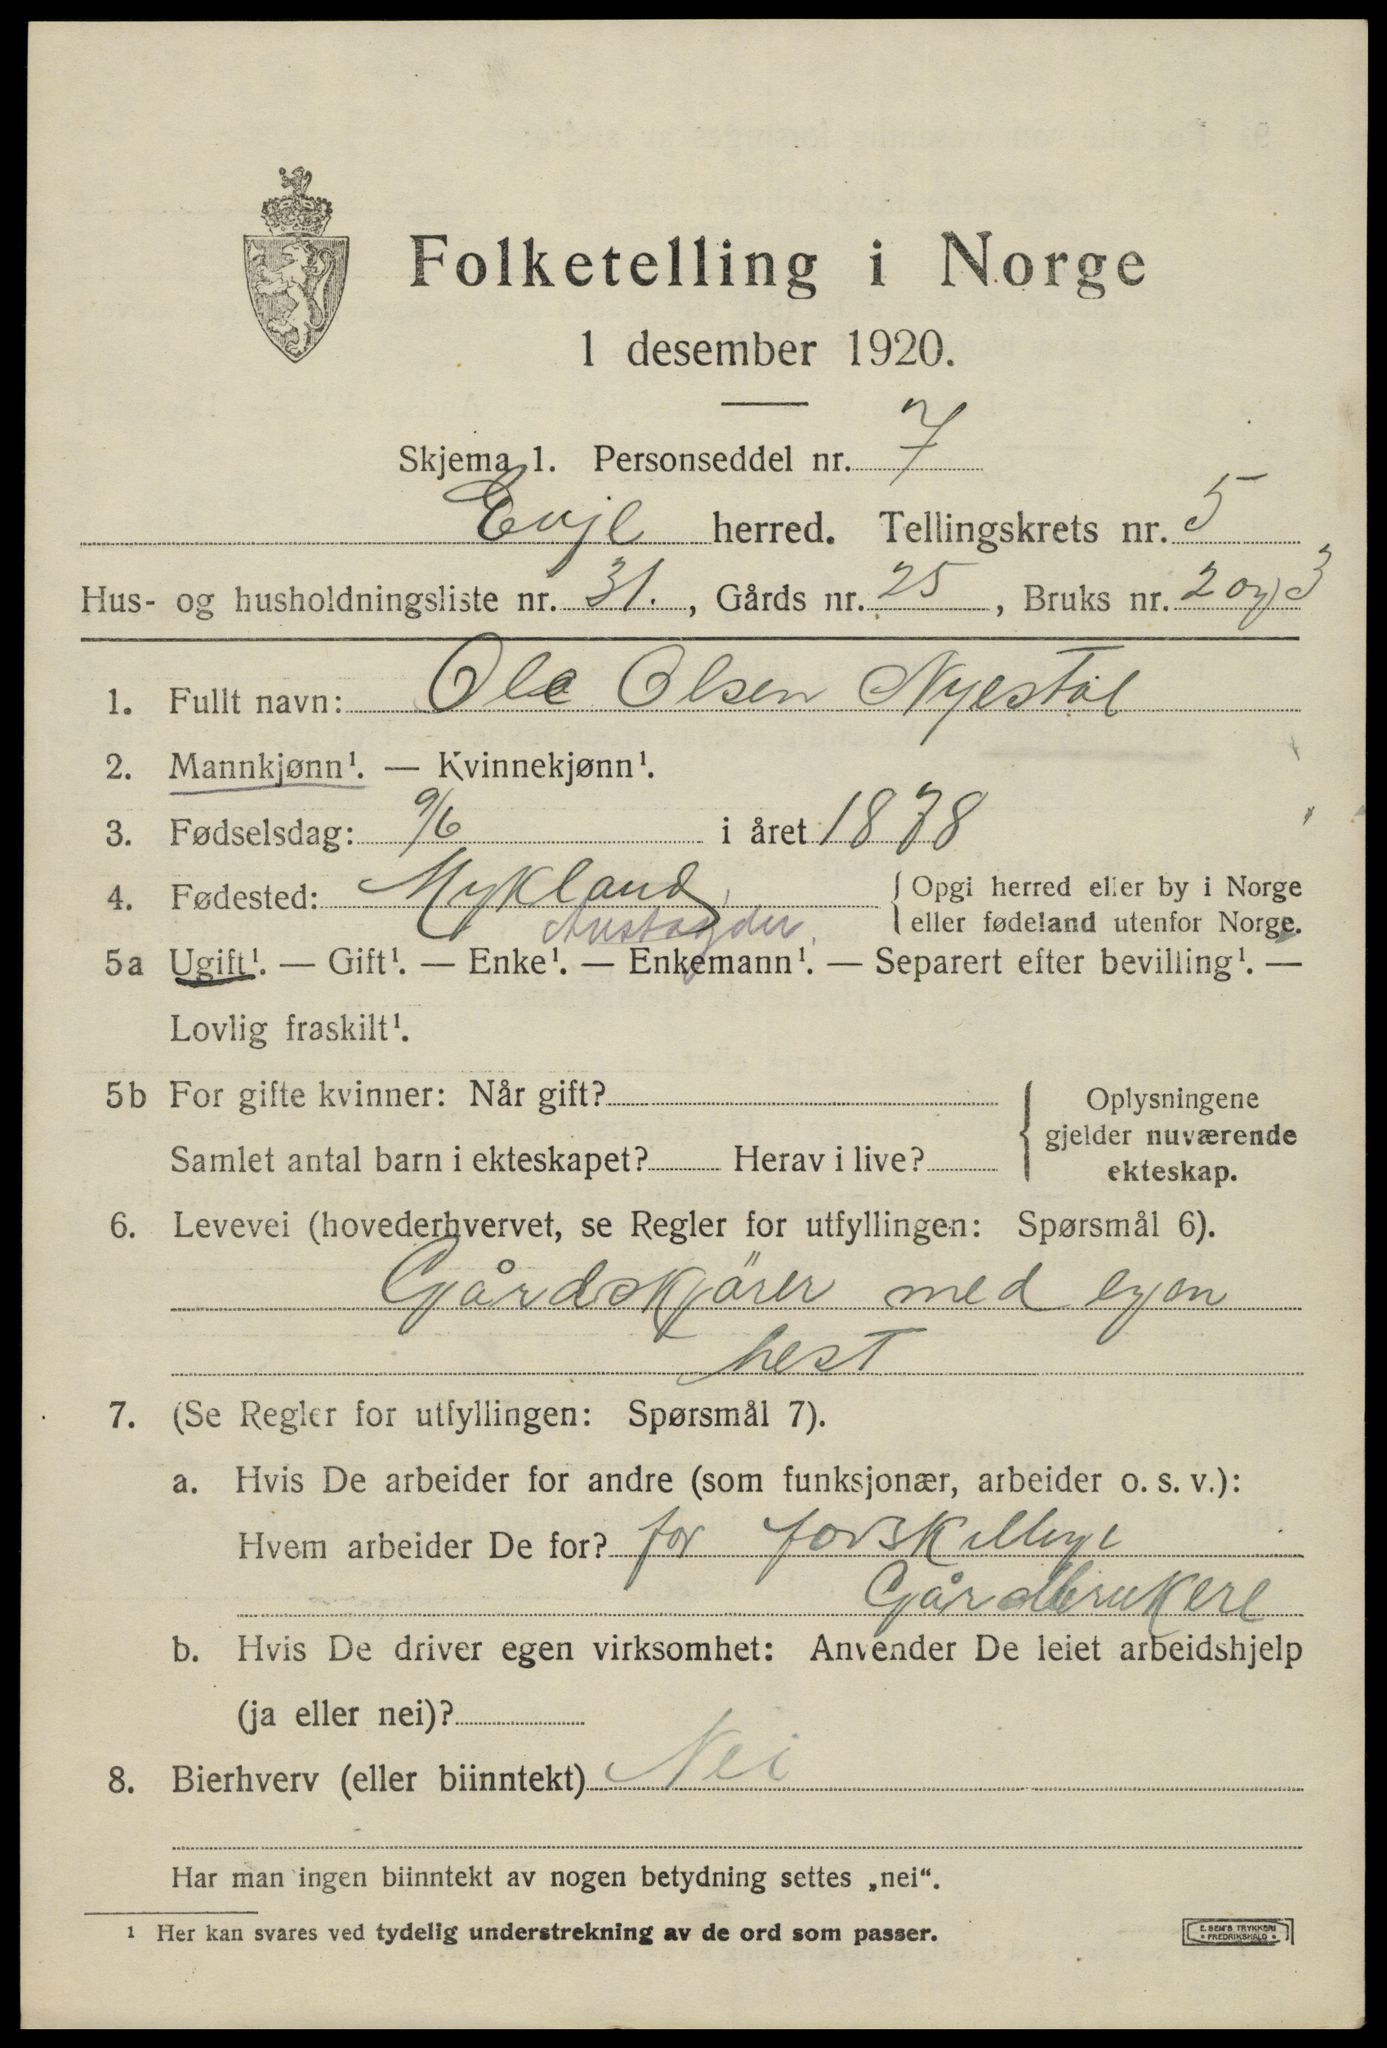 Folketelling i Norge
1 desember 1920.
Skjema 1. Personseddel nr. 7
Evje herred. Tellingskrets nr. 5
Hus- og husholdningsliste nr. 31., Gårds nr. 25, Bruks nr. 2 og 3
1. Fullt navn: Ole Olsen Nyestöl
2. Mannkjønn¹. — Kvinnekjønn¹.
3. Fødselsdag: 9/6 i året 1878
4. Fødested: Mykland, { Opgi herred eller by i Norge
eller fødeland utenfor Norge.
Austagder.
5a Ugift¹. — Gift¹. — Enke¹. — Enkemann¹. — Separert efter bevilling¹. —
Lovlig fraskilt¹.
5b For gifte kvinner: Når gift? { Oplysningene
gjelder nuværende
ekteskap.
Samlet antal barn i ekteskapet? Herav i live?
6. Levevei (hovederhvervet, se Regler for utfyllingen: Spørsmål 6).
Gårdskjörer med egen
hest
7. (Se Regler for utfyllingen: Spørsmål 7).
a. Hvis De arbeider for andre (som funksjonær, arbeider o. s. v.):
Hvem arbeider De for? for forskellige
Gårdbrukere
b. Hvis De driver egen virksomhet: Anvender De leiet arbeidshjelp
(ja eller nei)?
8. Bierhverv (eller biinntekt) Nei
Har man ingen biinntekt av nogen betydning settes „nei“.
¹ Her kan svares ved tydelig understrekning av de ord som passer.
E. SEM'S TRYKKERI
• FREDRIKSHALD •